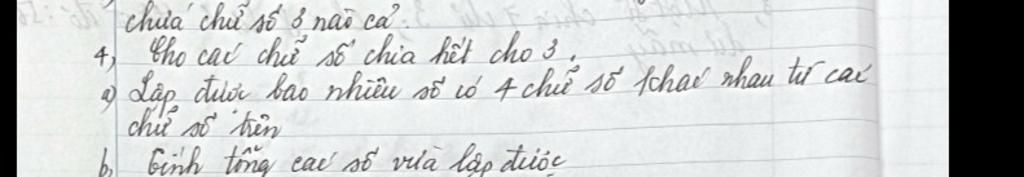 chứa chữ số 3 nào cả.
4, Cho các chữ số chia hết cho 3.
a) Lập được bao nhiêu số có 4 chữ số khác nhau từ các
chữ số trên
b, Tính tổng các số vừa lập được